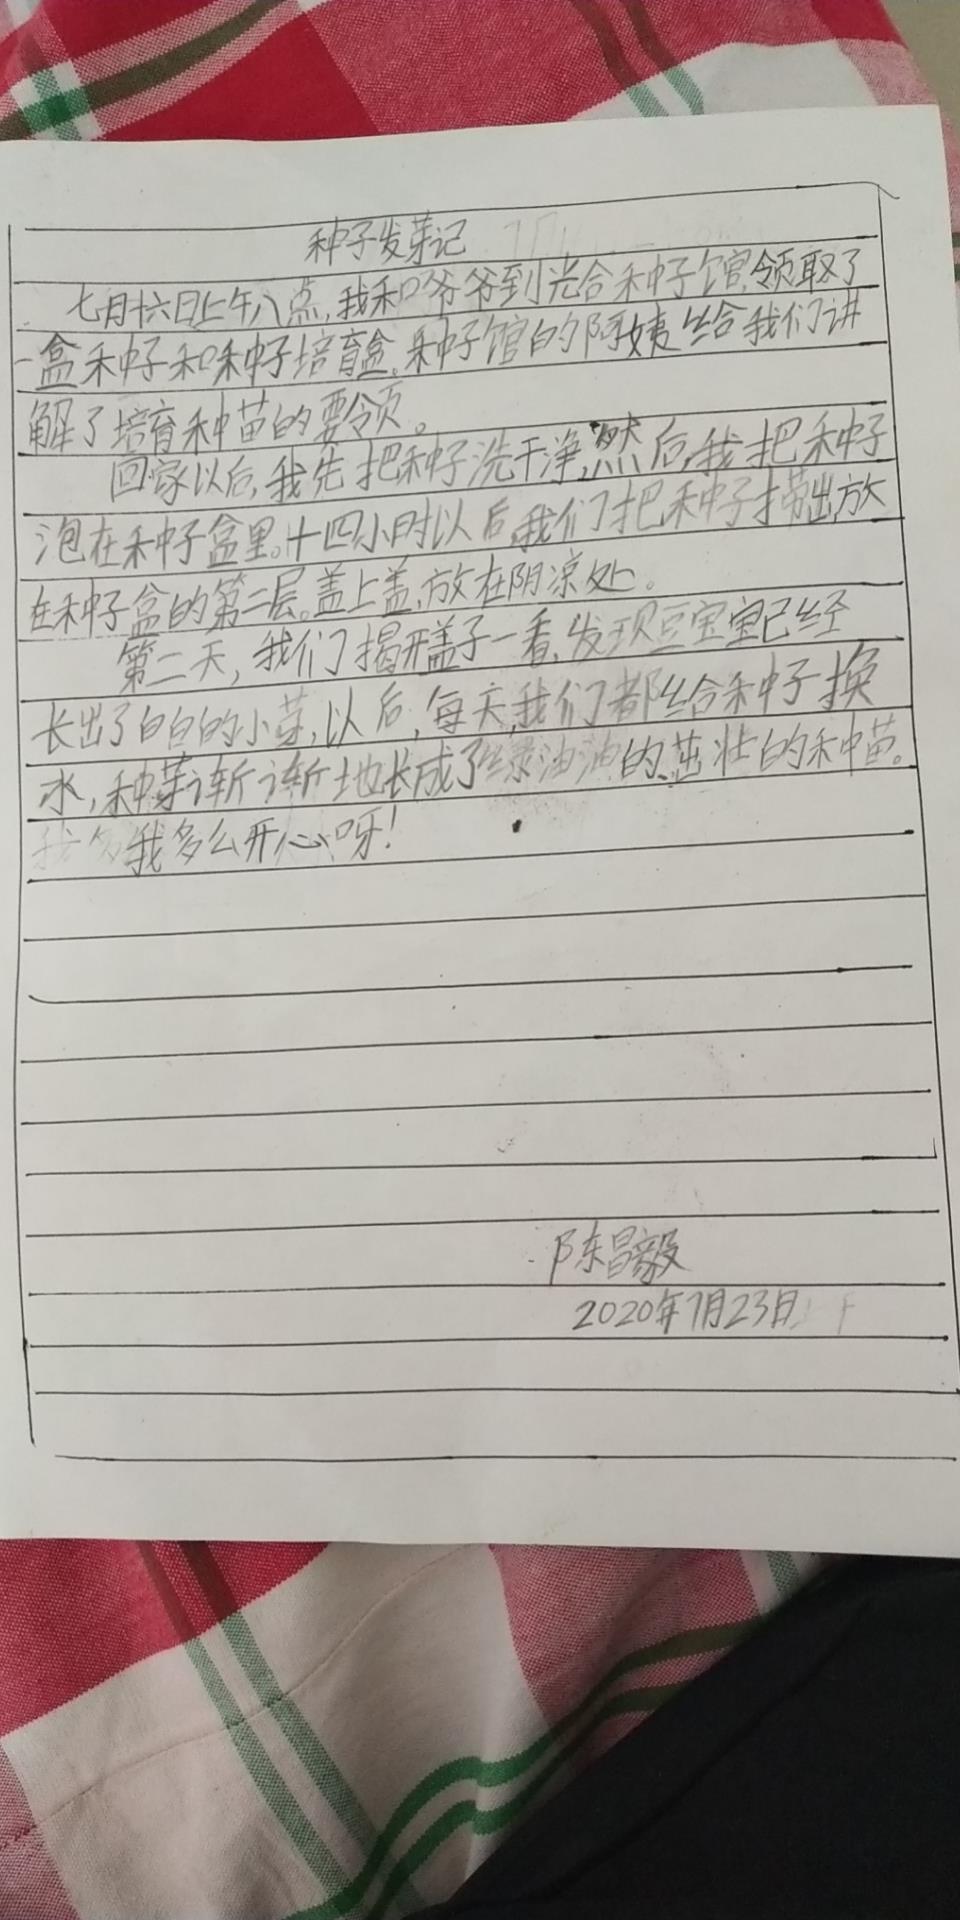 种子发芽记
七月十六日上午八点,我和爷爷到光合种子馆领取了
一盒种子和种子培育盒。种子馆的阿姨给我们讲
解了培育种苗的要领。
回家以后,我先把种子洗干净,然后,我把种子
泡在种子盒里。十四小时以后,我们把种子捞出,放
在种子盒的第二层。盖上盖,放在阴凉处。
第二天,我们揭开盖子一看,发现豆宝宝已经
长出了白白的小芽,以后,每天,我们都给种子换
水,种芽渐渐地长成了绿油油的、茁壮的种苗。
我多么开心呀!
陈昌毅
2020年7月23日